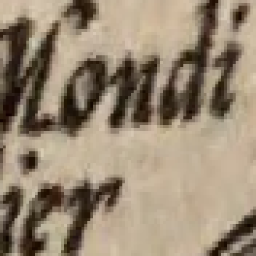 Mondi
ier